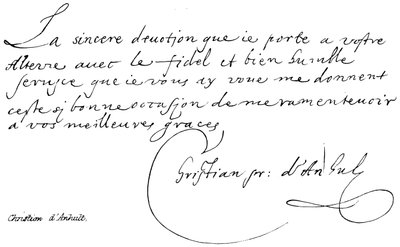 La sincere deuotion que ie porte a vostre
Altezze auec le fidel et bien humble
seruice que ie vous ay voue me donnent
ceste sy bonne occasion de me ramenteuoir
a vos meilleures graces
Christian pr: d'Anhalt
Christian d'Anhalt.